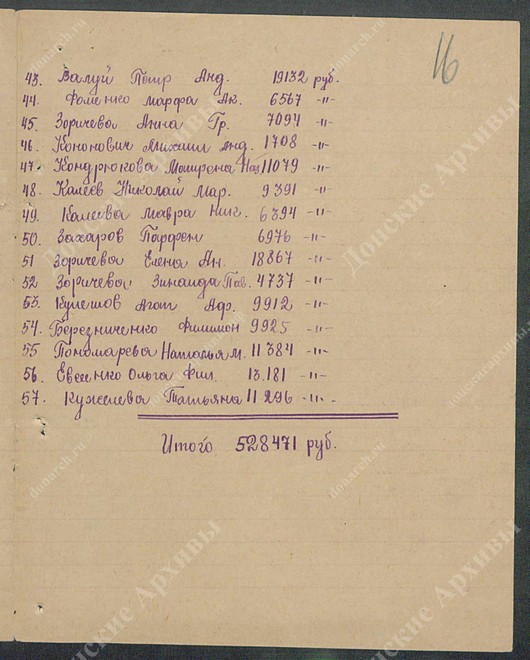 16
43. Валуй Петр Анд. 19132 руб.
44. Фоменко Марфа Ак. 6567 -"-
45. Зоричева Анна Гр. 7094 -"-
46. Кононович Михаил Анд. 1708 -"-
47. Кондрюкова Матрона Наз. 11079 -"-
48. Калеев Николай Мар. 9391 -"-
49. Калеева Мавра Ник. 6394 -"-
50. Захаров Парфен 6976 -"-
51 Зоричева Елена Ан. 18867 -"-
52 Зоричева Зинаида Пав. 4737 -"-
53. Кулешов Агап Аф. 9912 -"-
54. Березниченко Филимон 9925 -"-
55 Пономарева Наталья М. 11384 -"-
56. Евсенко Ольга Фил. 13.181 -"-
57. Кужелева Татьяна 11296 -"-
Итого 528471 руб.
Донские Архивы
donarch.ru